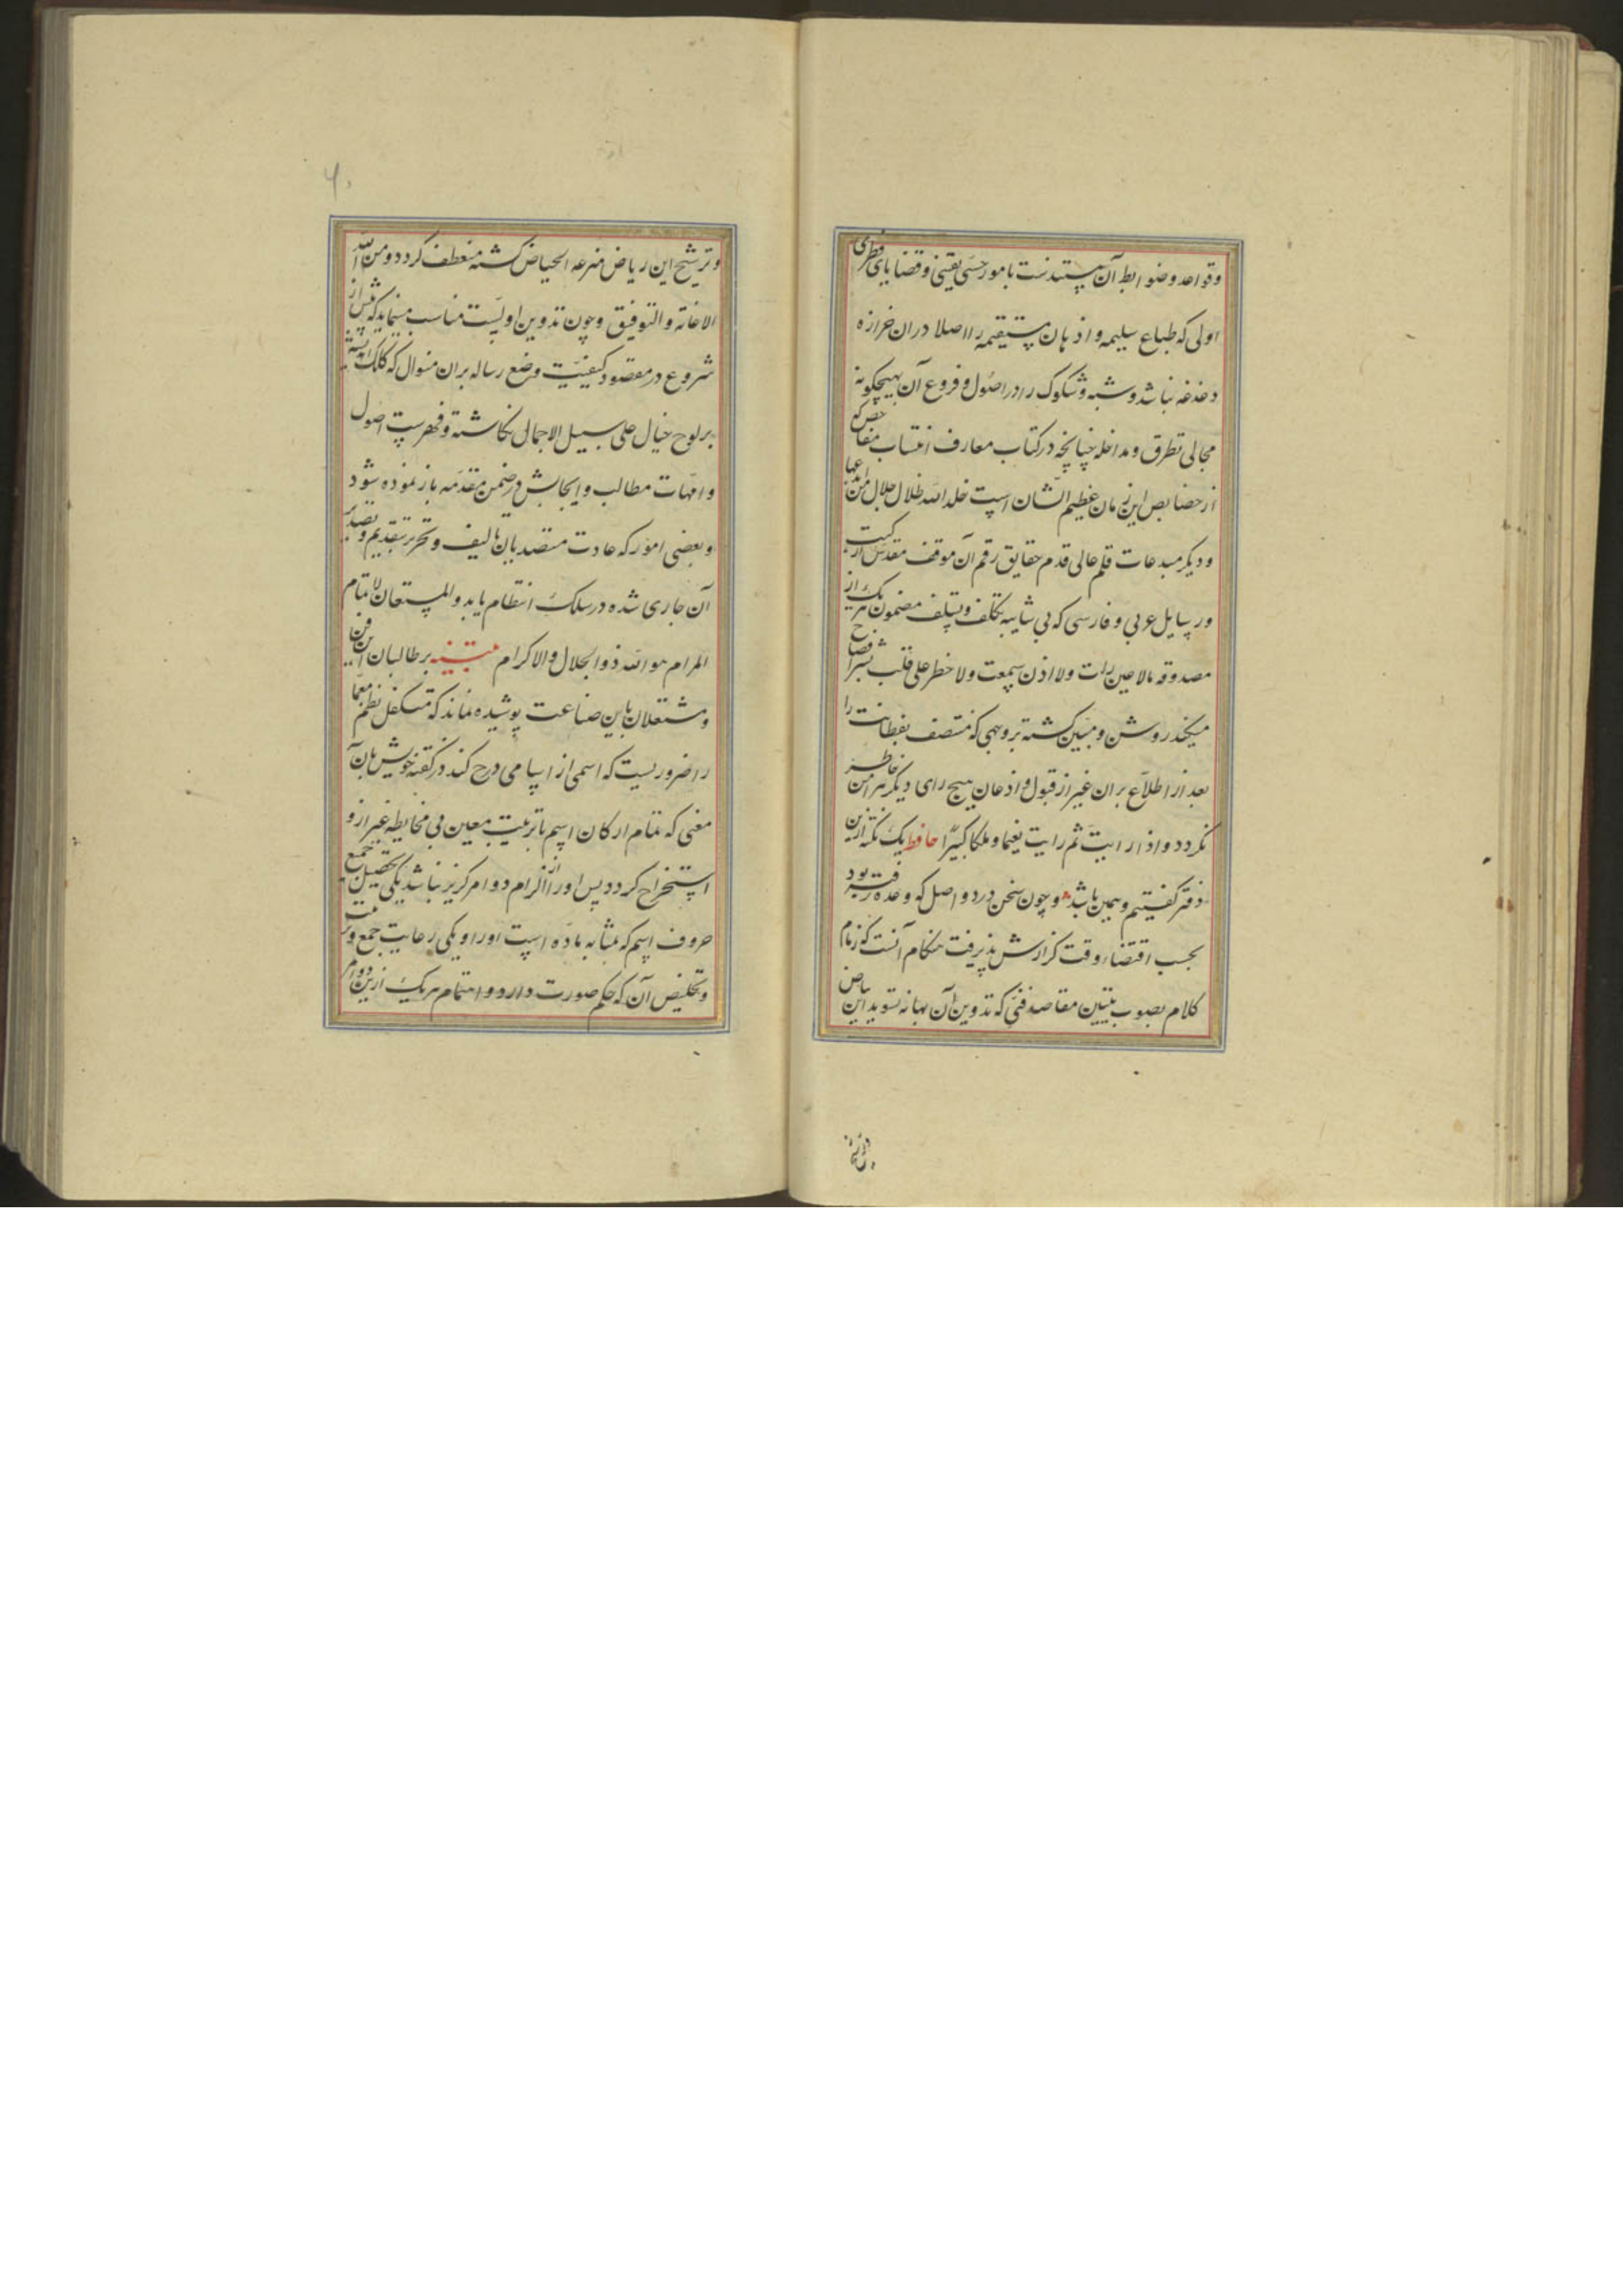 وقواعد وضوابط آن مستندست بامور حسّی یقینی وقضایای فطری
اولی که طباع سلیمه واذهان مستقیمه را اصلا دران خرازه
دغدغه نباشد وشبه وشکوک را در اصول وفروع آن بهیچگونه
مجالی تطرق ومداخله چنانچه در کتاب معارف انتساب مفاحص که
از خصایص این زمان عظیم الشان است خلد الله ظلال جلال
ودیگر مبدعات قلم عالی قدم حقایق رقم آن موقف مقدس از کتب
ورسایل عربی وفارسی که بی شایبه تکلف وتسلف مضمون هریک از
مصدوقه مالاعین رات ولا اذن سمعت ولا خطر علی قلب بشر
میکند روشن ومبین کشته بروجهی که متصف بفطانت را
بعد از اطلاع بران غیر از قبول واذعان هیچ رای دیکر پیرامن خاطر
نکردد واذا رایت ثم رایت نعیما وملکا کبیرا حافظ یک نکته ازین
دفتر کفتیم وهمین باشد وچون سخن در دو اصل که وعده رفته بود
بحسب اقتضاء وقت کزارش پذیرفت هنکام آنست که زمام
کلام بصوب تبیین مقاصد فنی که تدوین آن بهانه تسوید این بیاض
وترشیح این ریاض مترعه الحیاض کشته منعطف کردد ومن الله
الاعانه والتوفیق وچون تدوین اولیست مناسب مینماید که پیش از
شروع در مقصود کیفیت وضع رساله بران منوال که کلک اندیشه
بر لوح خیال علی سبیل الاجمال نکاشته وفهرست اصول
وامّهات مطالب وابحابش در ضمن مقدّمه باز نموده شود
وبعضی امور که عادت متصدیان تالیف وتحریر بتقدیم وتصدیر
آن جاری شده در سلک انتظام یابد والمستعان لاتمام
المرام هو الله ذو الجلال والاکرام تنبیه بر طالبان این فن
ومشتعلان باین صناعت پوشیده نماند که متکفل نظم معمّا
را ضروریست که اسمی از اسامی درج کند در کفته خویش بان
معنی که تمام ارکان اسم باتربیت معین بی مخابطه غیر ازو
استخراج کردد پس او را از الزام دو امر کزیر نباشد یکی تحصیل جمیع
حروف اسم که بمثابه مادّه است او را ویکی رعایت جمع وترتیب
وتخلیص آن که حکم صورت دارد واهتمام هریک ازین دو امر